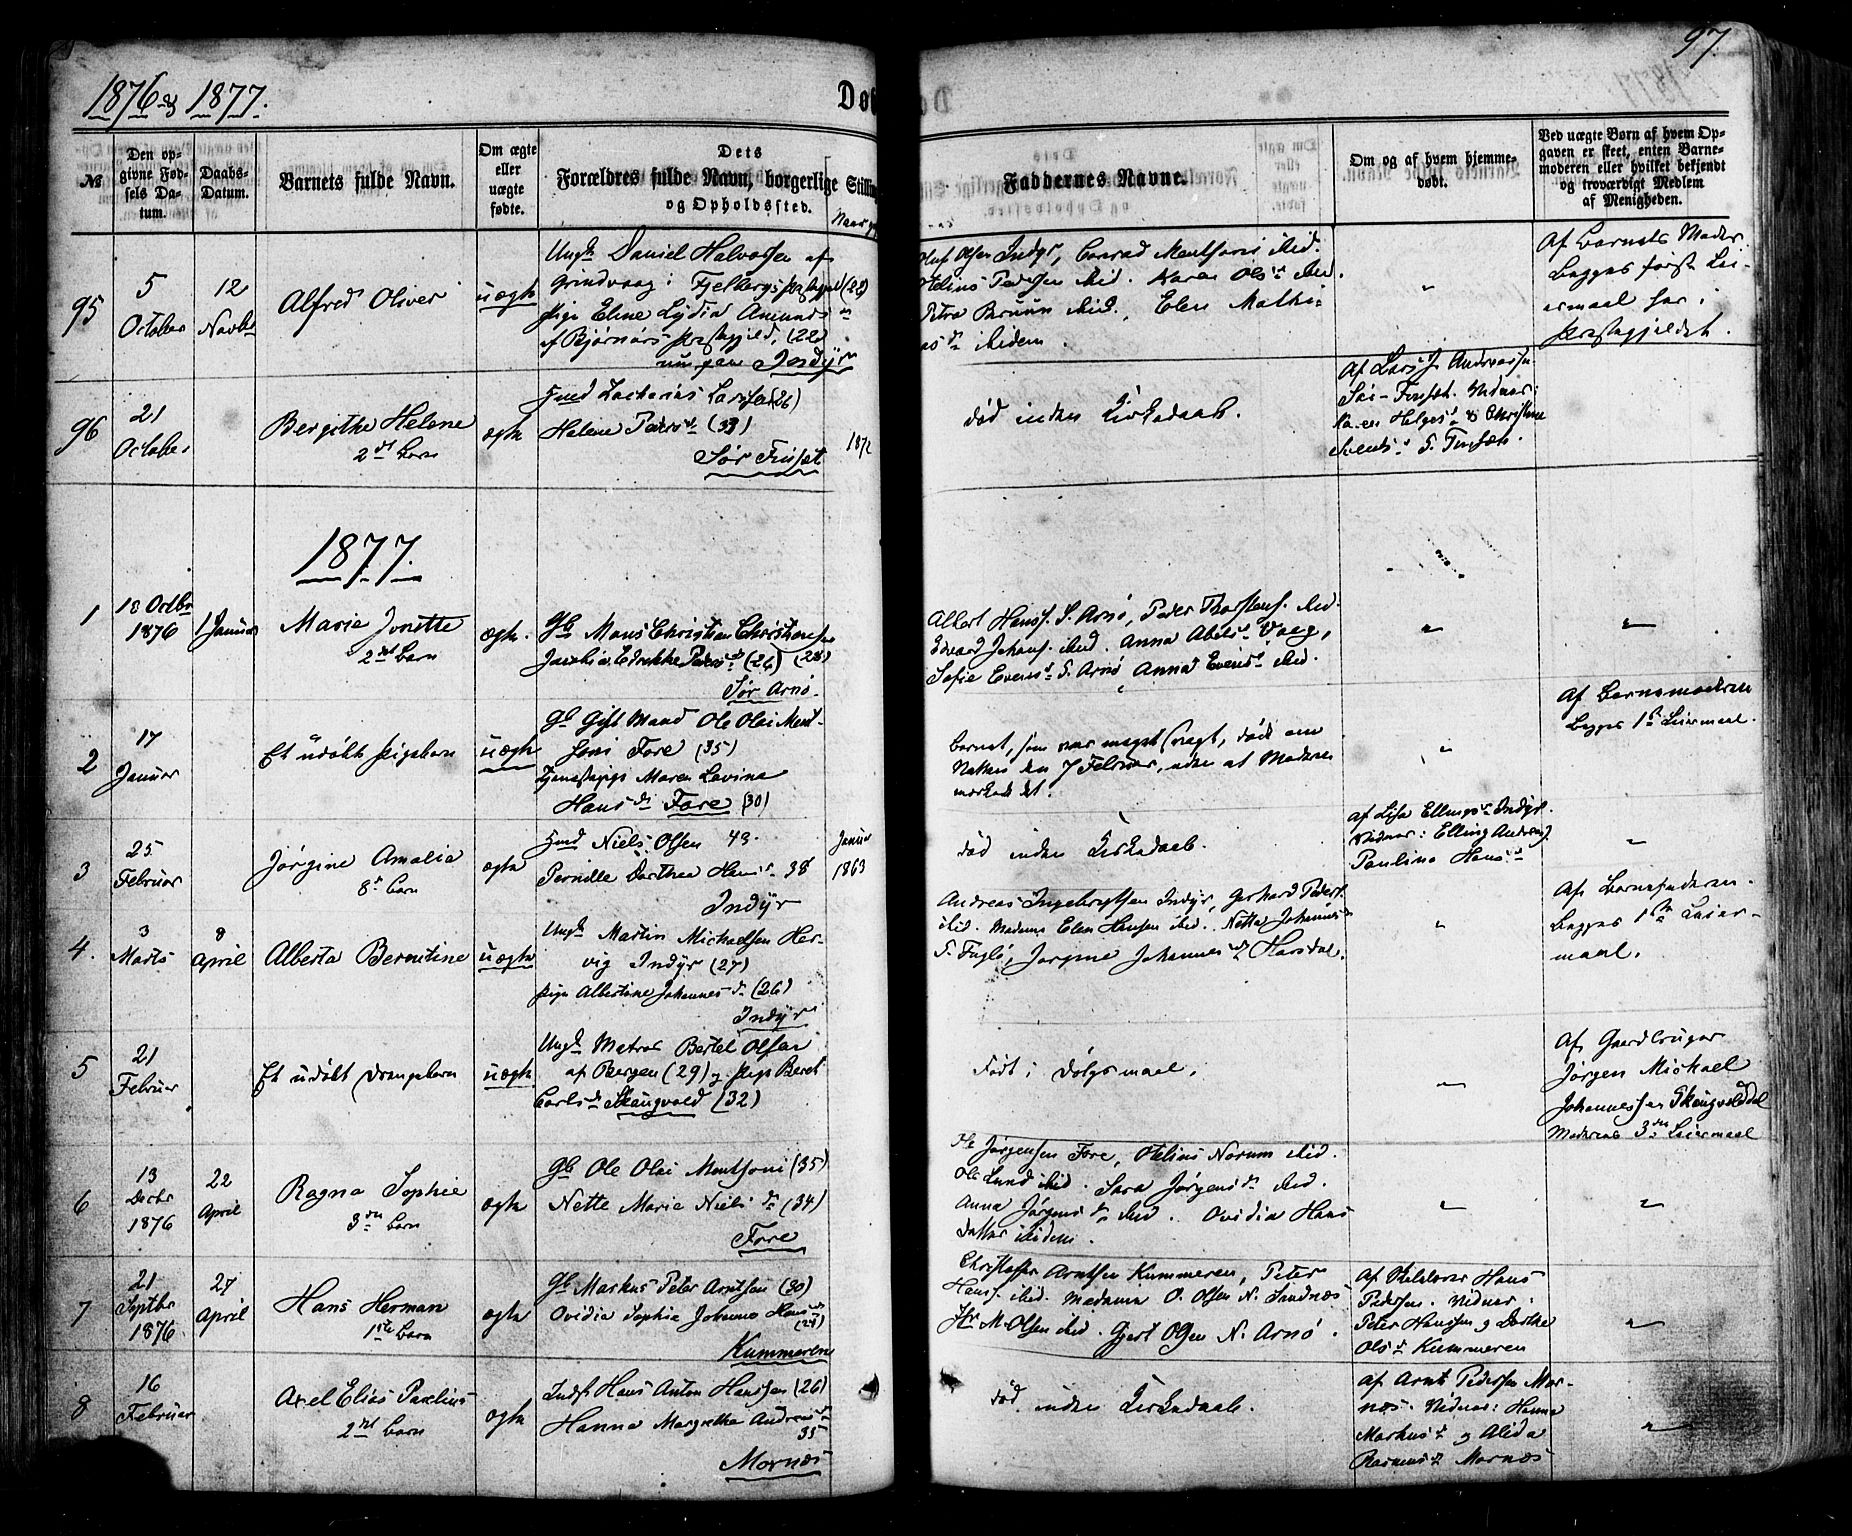 97.
1876 og 1877.
Dø
№
Den op-
givne Fød-
sels Da-
tum.
Daabs-
Datum.
Barnets fulde Navn.
Om ægte
eller
uægte
fødte.
Dets
Forældres fulde Navn, borgerlige Stillin
og Opholdssted.
Faddernes Navne.
Om og af hvem hjemme-
døbt.
Ved uægte Børn af hvem Op-
gaven er skeet, enten Barne-
moderen eller hvilket bekjendt
og troværdigt Medlem
af Menigheden.
95
5
October
12
Novbr
Alfred Oliver
uægte
Ungk. Daniel Halvorsen af
Grindvaag i Fjelbergs Præstegjeld (22)
Pige Eline Lydia Amunds
af Bjørnørs Præstegjeld, (22)
Indyr
Oluf Olsen Indyr, Conrad Mentsoni ibid.
Helius Pedersen ibid. Karen Olsd. ibid.
Petra Bruun ibid., Elen Mathi-
asd. ibidem.
"
Af Barnets Moder
Begges første Lei-
ermaal her i
Præstegjeldet.
96
21
October
Bergithe Helene
2det Barn
ægte
Zacharias Larsen (26)
Helene Pedersd. (33)
Sør Finset
187
død inden Kirkedaab.
Af Lars J. Andreassen
Sør-Finset. Vidner:
Karen Helgesd. og Christine
S. Finset.
1877.
1
18 Octbr
1876
1 Januar
Marie Jonette
2det Barn
ægte.
Gb. Mons Christian Christensen
Pedersd. (26) (28)
Sør Arnø.
Albert Hans. S. Arnø, Peder Thorstens. ibid.
Edvard Johans. ibid. Anna Abelsd. Vaag,
Sofie Evensd. S. Arnø, Anna Evensd. ibid.
"
"
2
17
Januar
Et udøbt Pigebarn
uægte
Gb. Gift Mand Ole Olai Ment-
soni Fore (35)
Tjenestepige Maren Lovina
Hansd. Fore (30)
Barnet, som var meget svagt, døde om
Natten den 7 Februar, uden at Moderen
mærkede det.
"
Af Barnemoderen
Begges 1ste Leiermaal.
3
25
Februar
Jørgine Amalia
8de Barn
ægte
Niels Olsen 43.
Pernille Dorthea Hansd. 38
Indyr
Januar
1863
død inden Kirkedaab.
af Lisa Ellingsd. Indyr.
Vidner: Elling Andreas.
Paulina Hansd.
"
4.
3
Marts
8
April
Alberta Berntine
uægte
Ungk. Martin Michaelsen Her-
vig Indyr (27)
Pige Albertine Johannesd. (26)
Indyr
Andreas Ingebrigtsen Indyr, Gerhard Peders.
ibid. Madame Elen Hansen ibid. Netta Johannesd.
S. Fuglø, Jørgine Johannesd. Horsdal.
"
Af Barnefaderen.
Begges 1ste Leier-
maal.
5
21
Februar
Et udøbt Drengebarn
uægte
Ungk. Matros Bertel Olsen
af Bergen (29) og Pige Beret
Carlsd. Skaugvold (32)
Født i Dølgsmaal.
"
Af Gaardbruger
Jørgen Michael
Johannessen Skaugvolddal
Moderens 3die Leiermaal
6
13
Decbr
1876
22
April
Ragna Sophie
3die Barn
ægte
Gb. Ole Olai Mentsoni (35)
Nette Marie Nielsd. (34)
Fore
Jørgensen Fore, Helius Norum ibid.
Ole Lund ibid. Sara Jørgensd. ibid.
Anna Jørgensd. ibid. Ovidia Hans
datter ibidem.
"
"
7
21
Septbr
1876
27
April
Hans Herman
1ste Barn
ægte
Gb. Markus Peter Arntsen (30)
Ovidia Sophie Johanna Hansd.
(28)
Kummeren
Christoffer Arntsen Kummeren, Peter
Hans. ibid. Madame O. Olsen N. Sandnæs
Hr. M. Olsen ibid. Gjert Olsen N. Arnø.
Af Hans
Pedersen. Vidner:
Peter Hanssen og Dorthe
Olsd. Kummeren
"
8
16
Februar
Axel Elias Paulius
2det Barn
ægte
Inds. Hans Anton Hanssen (26)
Hanna Margrethe Andreasd.
35
Mornæs
død inden Kirkedaab.
af Arnt Pedersen Mor-
næs. Vidner: Hanna
Markusd. og Alida
Rasmusd. Mornæs
"